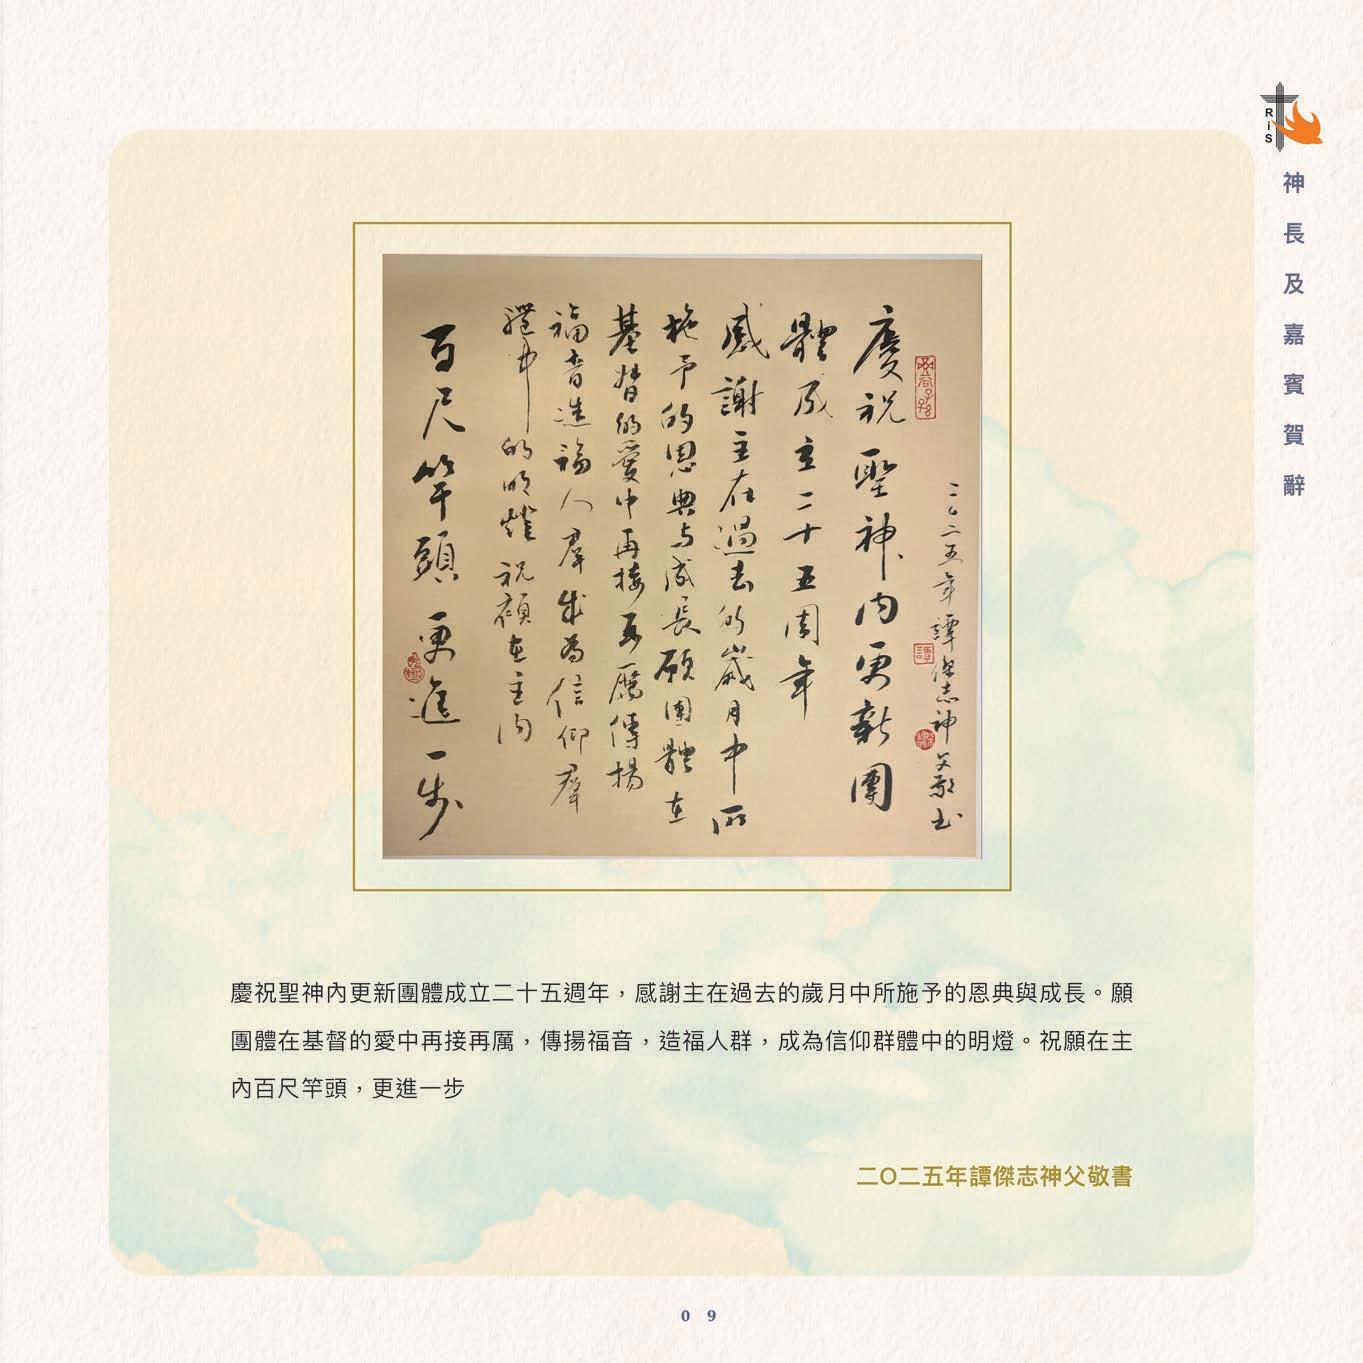 RiS
神長及嘉賓賀辭
二〇二五年譚傑志神父敬书
譚
慶祝聖神内更新團
體成立二十五周年
感謝主在過去的歲月中所
施予的恩典与成長願團體在
基督的愛中再接再厲傳揚
福音造福人羣成為信仰羣
體中的明燈祝願在主内
百尺竿頭更進一步
慶祝聖神內更新團體成立二十五週年，感謝主在過去的歲月中所施予的恩典與成長。願
團體在基督的愛中再接再厲，傳揚福音，造福人群，成為信仰群體中的明燈。祝願在主
內百尺竿頭，更進一步
二O二五年譚傑志神父敬書
09